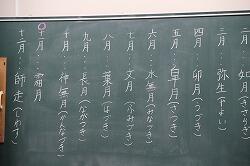 二月…
三月…弥生(やよい)
四月…卯月(うづき)
五月…皐月(さつき)
六月…水無月(みなづき)
七月…文月(ふみづき)
八月…葉月(はづき)
九月…長月(ながつき)
十月…神無月(かんなづき)
十一月…霜月
十二月…師走(しわす)